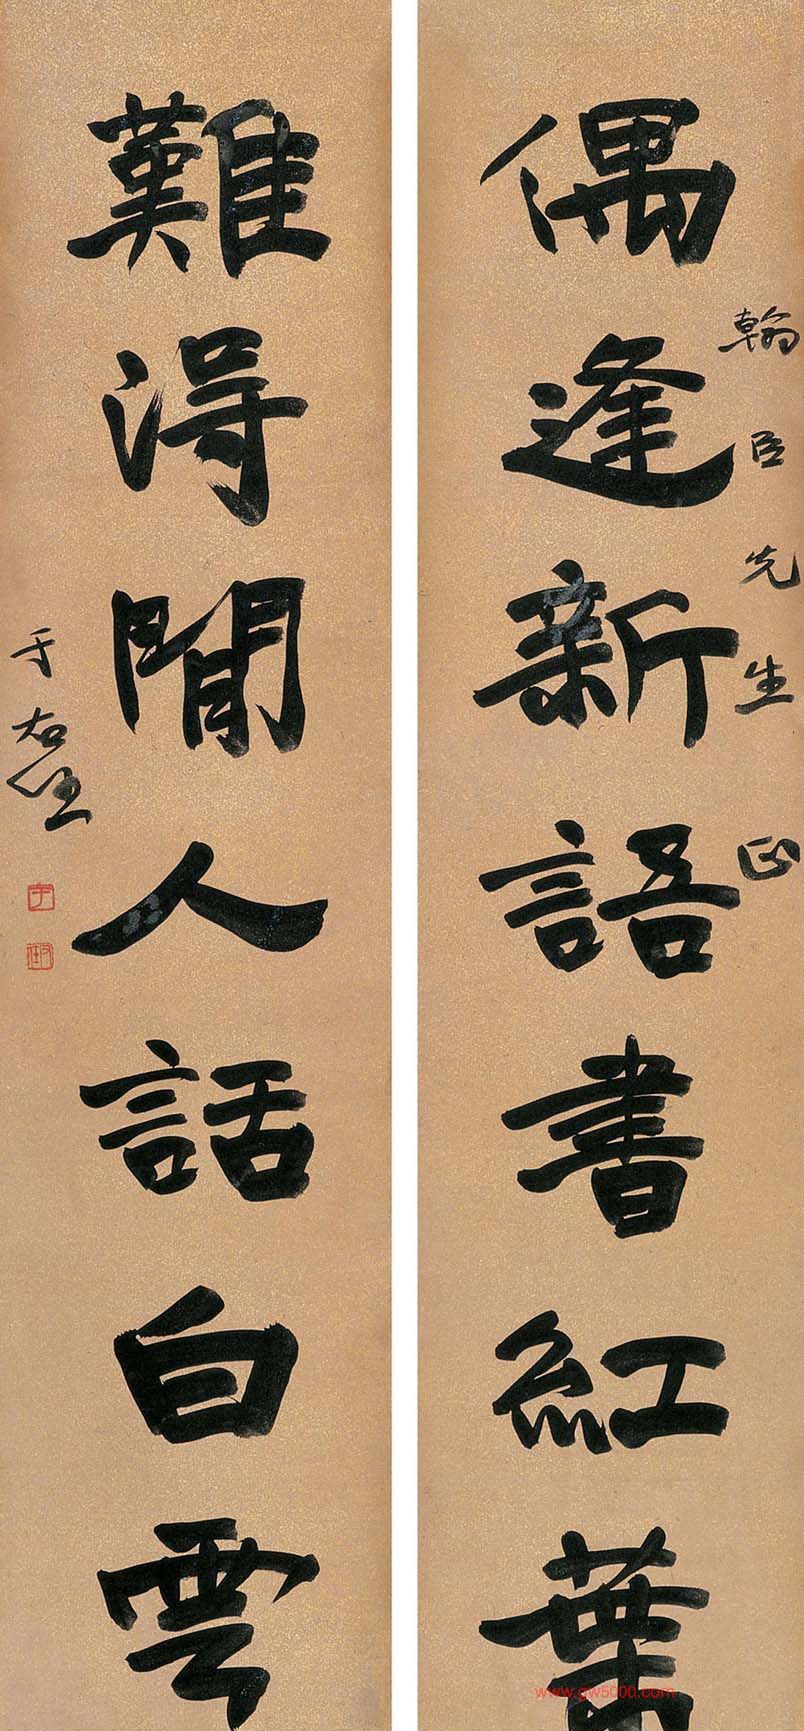 偶逢新語書紅葉
翰臣先生正
難得閒人話白雲
于右任
www.gw5000.com